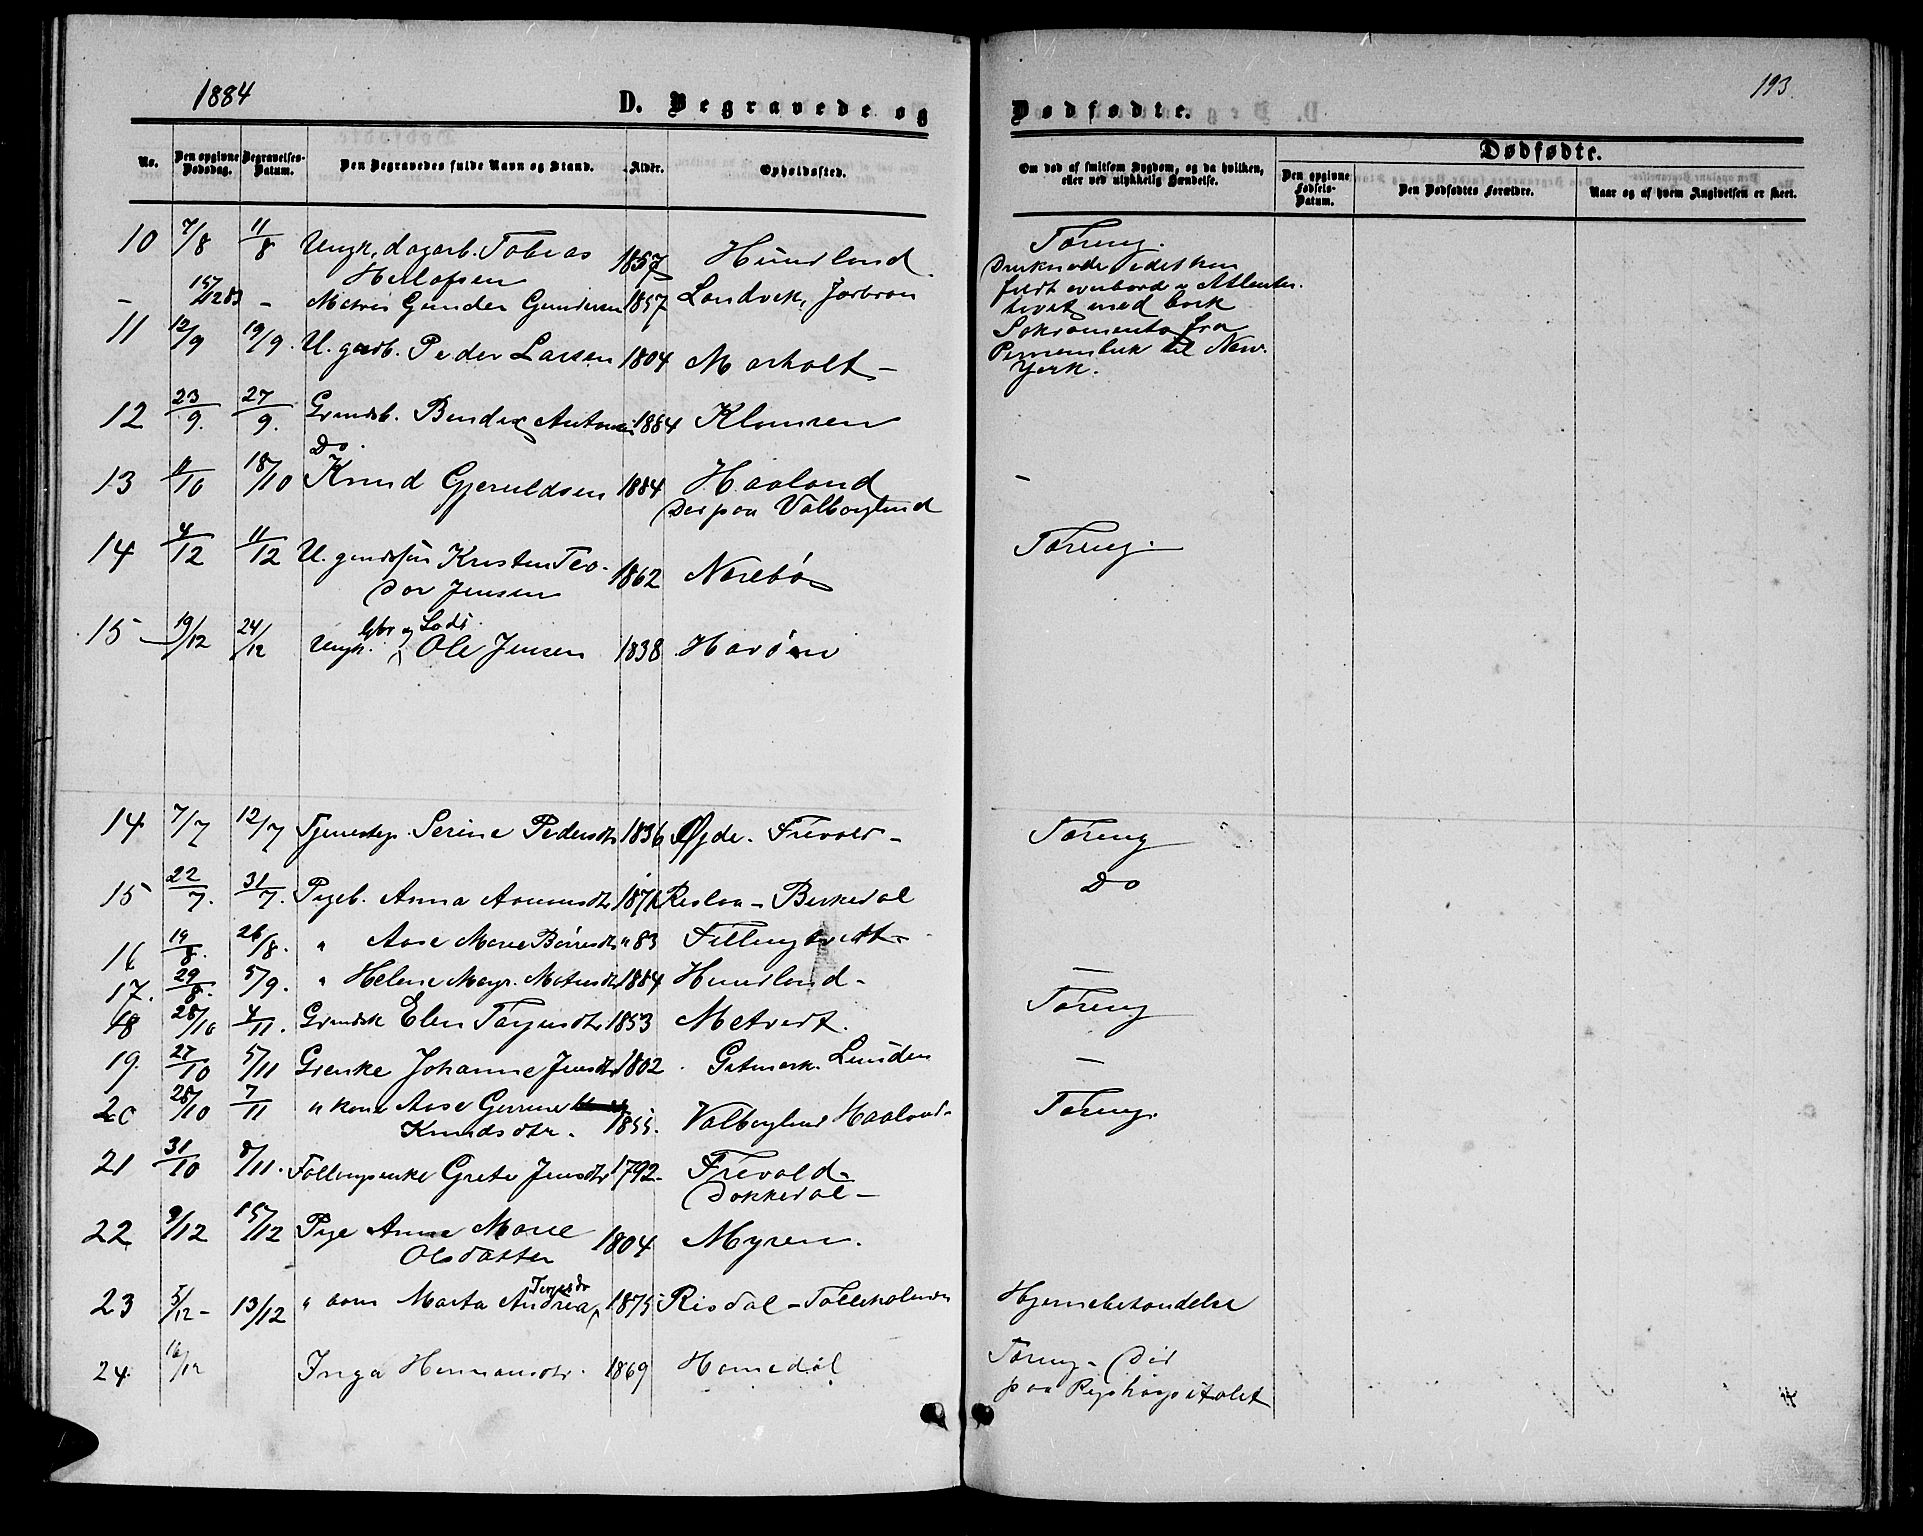 1884
D. Begravede og
No.
Den opgivne Dødsdag.
Begravelses-Datum.
Den Begravedes fulde Navn og Stand.
Alder.
Opholdssted.
10 7/8 11/8 Ungk. dagarb. Tobias 1857 Hundland.
Hellofsen
- 15/12 83 - Matros Gunder Gundersen 1857 Landvek,
11 12/9 19/9. U. gaarb. Peder Larsen 1804 Morholt-
12 23/9. 27/9. Grundsb. Bendix Anton 1884 Klomren
13 /10 18/10 Do. Knud Gjeruldsen 1884 Haaland
Død paa Valborglund
14 4/12 11/12 U. Kristen Teo- 1862 Narebø
dor Jensen
15 19/12 24/12 Ungk. Gbr og Lods. Ole Jensen 1838 Havøen
14 7/7 12/7 Tjenestep. Serine Pedersdtr 1836 Øjde. Frivold-
15 22/7. 31/7. Pigeb. Anna 1871 Reslaa - Birkedal
16 19/8. 26/8. " Aase Marie Børresdtr "83 Fillingtvedt
17. 29/8. 5/9. " Helene Margr. 1884 Hundland-
18 28/10 4/11. Grundsk Elen Tarjusdtr 1853 Metvedt.
19. 27/10 5/11 Grenke Johanne Jensdtr 1802. Gitmark. Lunden
20 28/10 7/11 " kone Aase Gurine
Knudsdtr. 1855. Valborglund Haaland-
21 31/10 8/11. Grete Jensdtr 1792- Frivold-
Dokkedal-
22 9/12 15/12 Pige Anne Marie 1804 Myren.
Olsdatter
23 5/12- 13/12 " barn Marta Andrea Terjesdr 1875 Risdal - Tolleholmen
24. 16/12 Inga Hermansdtr. 1869 Homedal
193.
Dødfødte.
Om død af smitsom Sygdom, og da hvilken, eller ved ulykkelig Hændelse.
Dødfødte.
Den opgivne Fødsels-Datum.
Den Dødfødtes Forældre.
Naar og af hvem Angivelsen er skeet.
Tæring.
Druknede idet han
faldt overbord i Atlanter-
havet med bark
Sakramento fra
Pernambuk til New-
York.
-
Tæring.
Tæring
Do
-
Tæring
-
Tæring.
Hjernebetændelse
Tæring - Død
paa Rigshospitalet